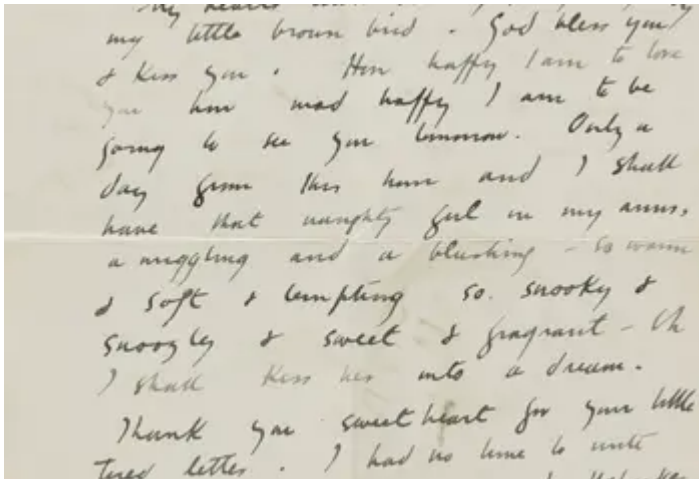 my little brown bird. God bless you
& kiss you. How happy I am to love
you how mad happy I am to be
going to see you tomorrow. Only a
day from this hour and I shall
have that naughty girl in my arms,
a niggling and a blushing – so warm
& soft & tempting so snooky &
snoozley & sweet & fragrant – Oh
I shall kiss her into a dream.
Thank you sweetheart for your little
tired letter. I had no time to write